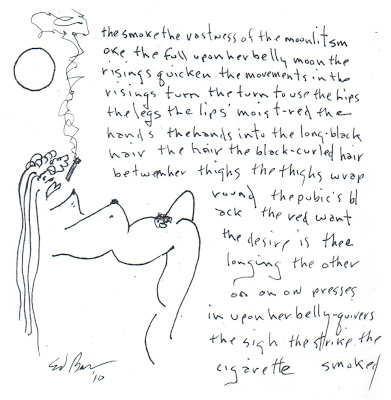 the smoke the vastness of the moonlit sm
oke the full upon her belly moon the
risings quicken the movements in the
risings turn the turn to use the hips
the legs the lips' moist-red the
hands the hands into the long-black
hair the hair the black-curled hair
between her thighs the thighs wrap
round the pubic's bl
ack the red want
the desire is thee
longing the other
on on on presses
in upon her belly-quivers
the sigh the strike the
cigarette smoked
'10